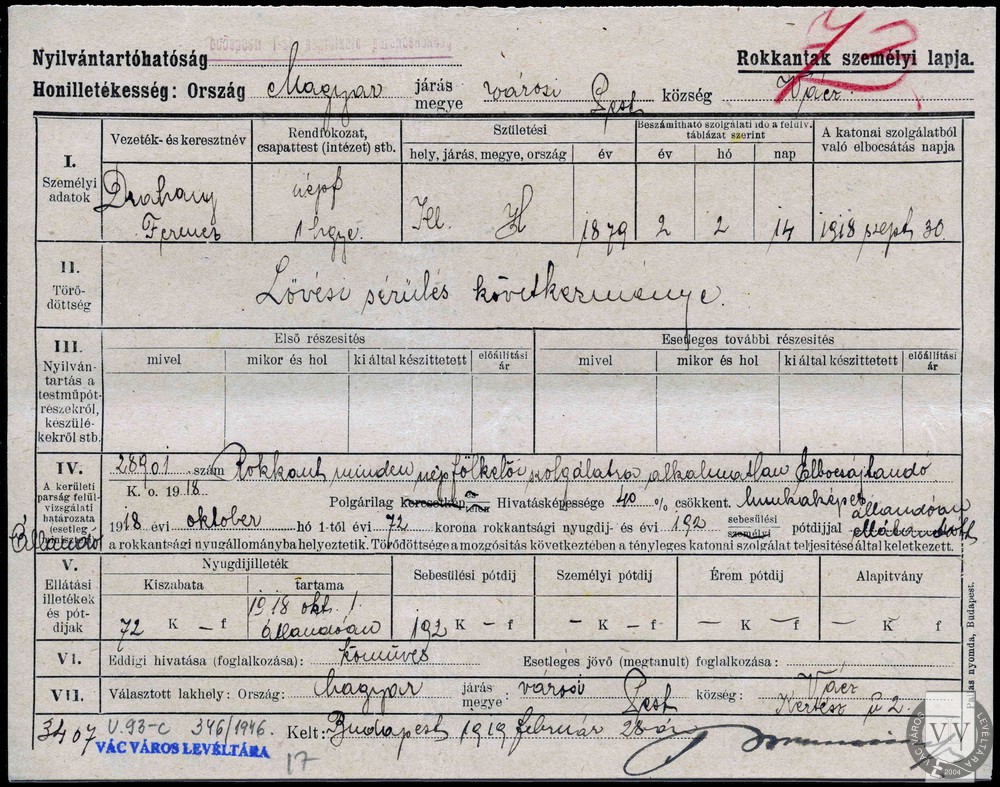 Nyilvántartóhatóság
Rokkantak személyi lapja.
73
Honilletékesség: Ország Magyar járás megye városi Pest község Vácz
I. Személyi adatok
Vezeték- és keresztnév
Rendfokozat, csapattest (intézet) stb.
Születési
hely, járás, megye, ország
év
Beszámítható szolgálati idő a felülv. táblázat szerint
év hó nap
A katonai szolgálatból való elbocsátás napja
Drahany Ferencz
népf
1 hgye.
1879 2 2 14 1918 szept 30.
II. Törődöttség
Lövési sérülés következménye.
III. Nyilvántartás a testműpótrészekről, készülékekről stb.
Első részesítés
Esetleges további részesítés
mivel mikor és hol ki által készíttetett előállítási ár
mivel mikor és hol ki által készíttetett előállítási ár
IV. A kerületi parság felülvizsgálati határozata (esetleg
Állandó
28901 szám Rokkant minden népfölkelői szolgálatra alkalmatlan Elbocsájtandó
K. o. 1918
Polgárilag keresetkép Hivatásképessége 40 % csökkent. munkaképes
1918 évi október hó 1-től évi 72 korona rokkantsági nyugdíj- és évi 192 sebesülési személyi pótdíjjal állandóan
a rokkantsági nyugállományba helyeztetik. Törődöttsége a mozgósítás következtében a tényleges katonai szolgálat teljesítése által keletkezett.
V. Ellátási illetékek és pótdíjak
Nyugdíjilleték
Kiszabata tartama
Sebesülési pótdíj
Személyi pótdíj
Érem pótdíj
Alapítvány
1918 okt. 1.
állandóan
72 K — f
192 K — f
K f
K — f
K f
VI. Eddigi hivatása (foglalkozása): kőműves Esetleges jövő (megtanult) foglalkozása:
VII. Választott lakhely: Ország: Magyar járás megye : városi Pest község: Vácz
Kertész u 2.
Pallas nyomda, Budapest.
3407 V.93-c 346/1946.
VÁC VÁROS LEVÉLTÁRA
17
Kelt: Budapest 1919 február 28-án
VÁC VÁROS LEVÉLTÁRA
VV
2004